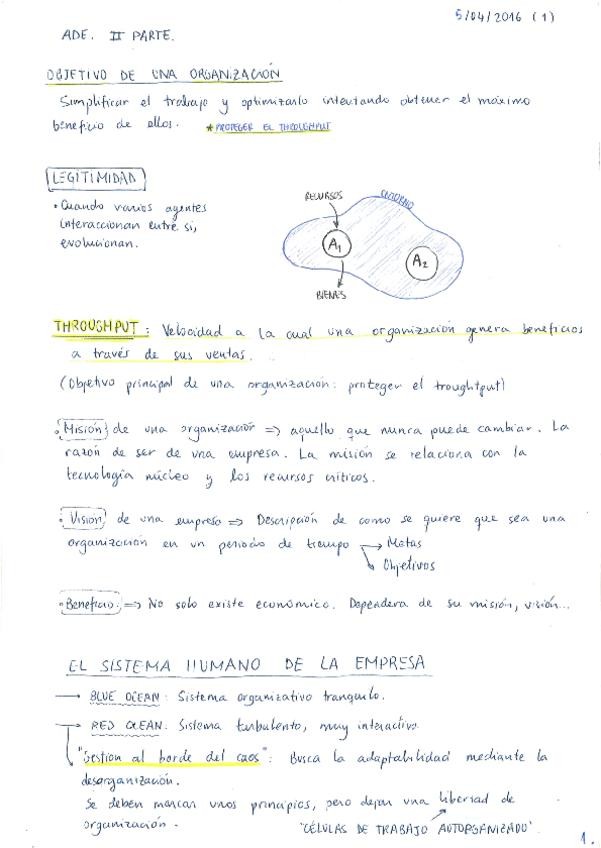 5/04/2016 (1)
ADE. II PARTE.
OBJETIVO DE UNA ORGANIZACIÓN
Simplificar el trabajo y optimizarlo intentando obtener el máximo
beneficio de ellos. * PROTEGER EL THROUGHPUT
LEGITIMIDAD
• Cuando varios agentes
interaccionan entre si,
evolucionan.
RECURSOS
ENTORNO
A1
A2
BIENES
THROUGHPUT : Velocidad a la cual una organización genera beneficios
a través de sus ventas.
(Objetivo principal de una organización: proteger el troughtput)
• Misión de una organización => aquello que nunca puede cambiar. La
razón de ser de una empresa. La misión se relaciona con la
tecnología núcleo y los recursos críticos.
• Visión de una empresa => Descripción de como se quiere que sea una
organización en un periodo de tiempo → Metas
↘ Objetivos
• Beneficio: => No solo existe económico. Dependera de su misión, visión...
EL SISTEMA HUMANO DE LA EMPRESA
→ BLUE OCEAN : Sistema organizativo tranquilo.
→ RED OCEAN. Sistema turbulento, muy interactivo.
"Gestion al borde del caos" : Busca la adaptabilidad mediante la
desorganización.
Se deben marcar unos principios, pero dejan una libertad de
organización.
"CÉLULAS DE TRABAJO AUTORGANIZADO"
1.